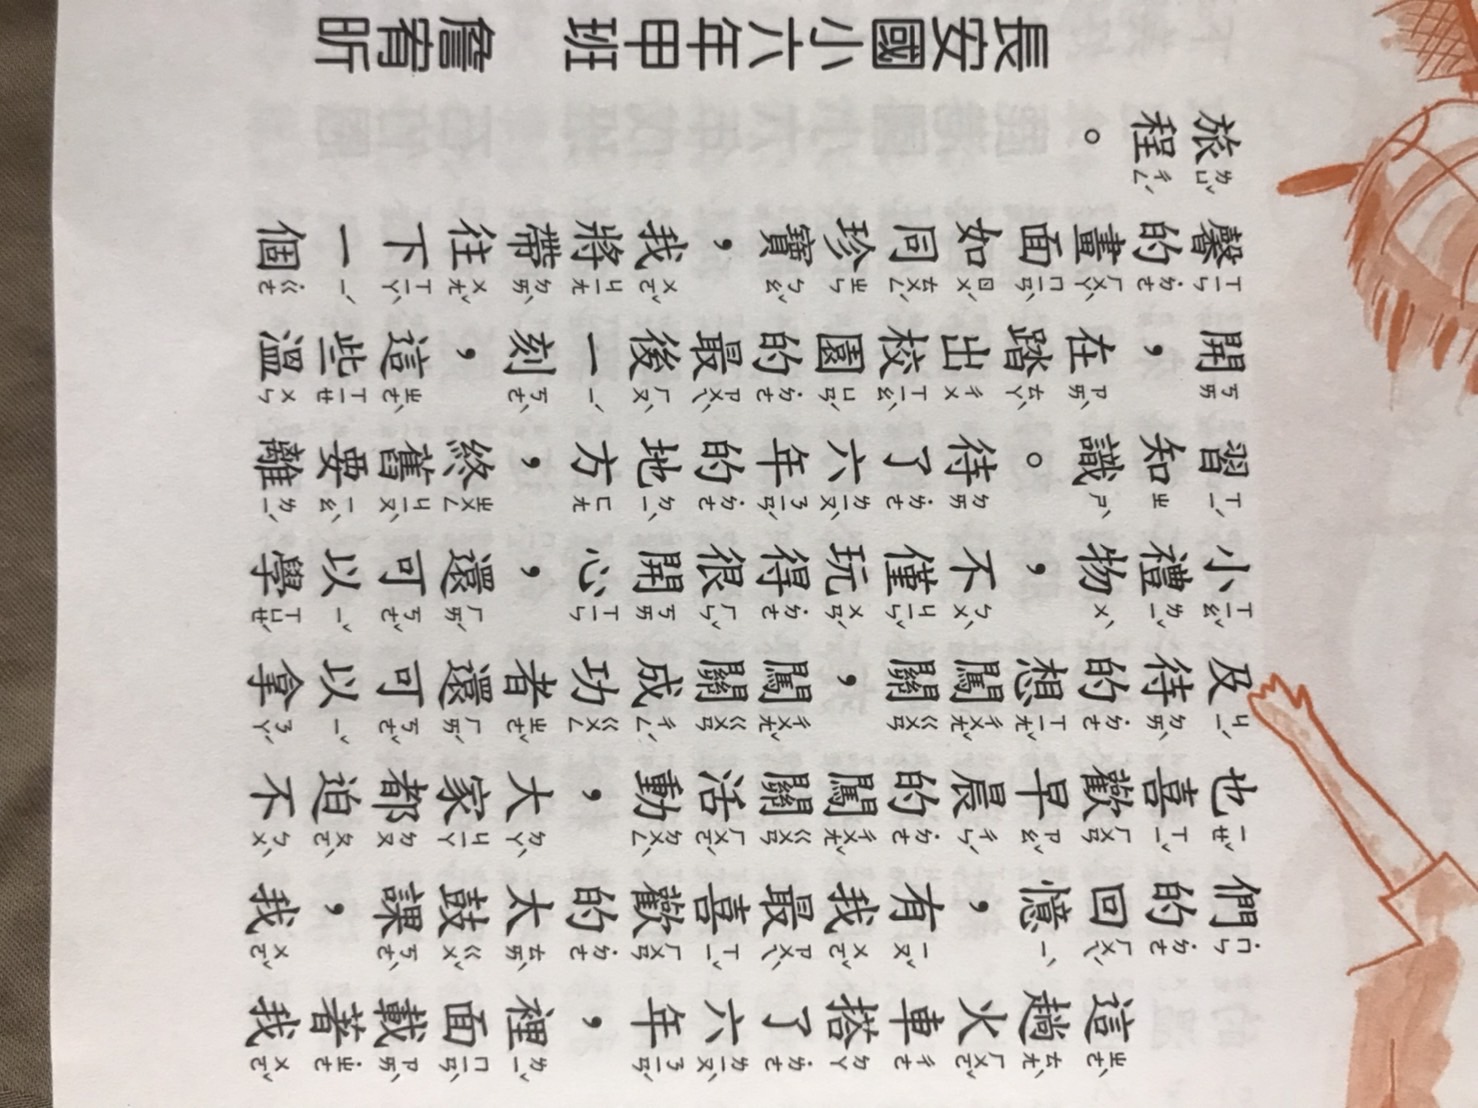 這趟火車搭了六年，裡面載著我
們的回憶，有我最喜歡的太鼓課，我
也喜歡早晨的闖關活動，大家都迫不
及待的想闖關，闖關成功者還可以拿
小禮物，不僅玩得很開心，還可以學
習知識。待了六年的地方，終舊要離
開，在踏出校園的最後一刻，這些溫
馨的畫面如同珍寶，我將帶往下一個
旅程。
長安國小六年甲班 詹宥昕